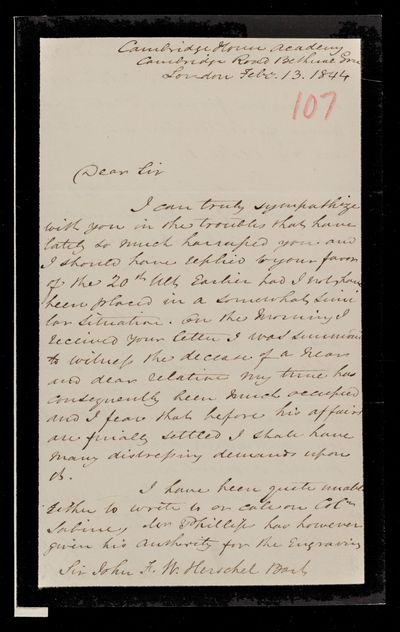 Cambridge House Academy
Cambridge Road Bethnal Grn
London Feb. 13. 1844
107
Dear Sir
I can truly sympathize
with you in the troubles that have
lately so much harrassed you and
I should have replied to your favor
of the 20th Ult. Earlier had I not have
been placed in a somewhat simi
lar situation. On the Morning I
received your letter I was summoned
to witness the decease of a near
and dear relative my time has
consequently been much occupied
and I fear that before his affairs
are finally settled I shall have
many distressing demands upon
it.
I have been quite unable
either to write to or call on Coln
Sabine, Mr Phillips has however
given his authority for the Engraving
Sir John F. W. Herschel Bart